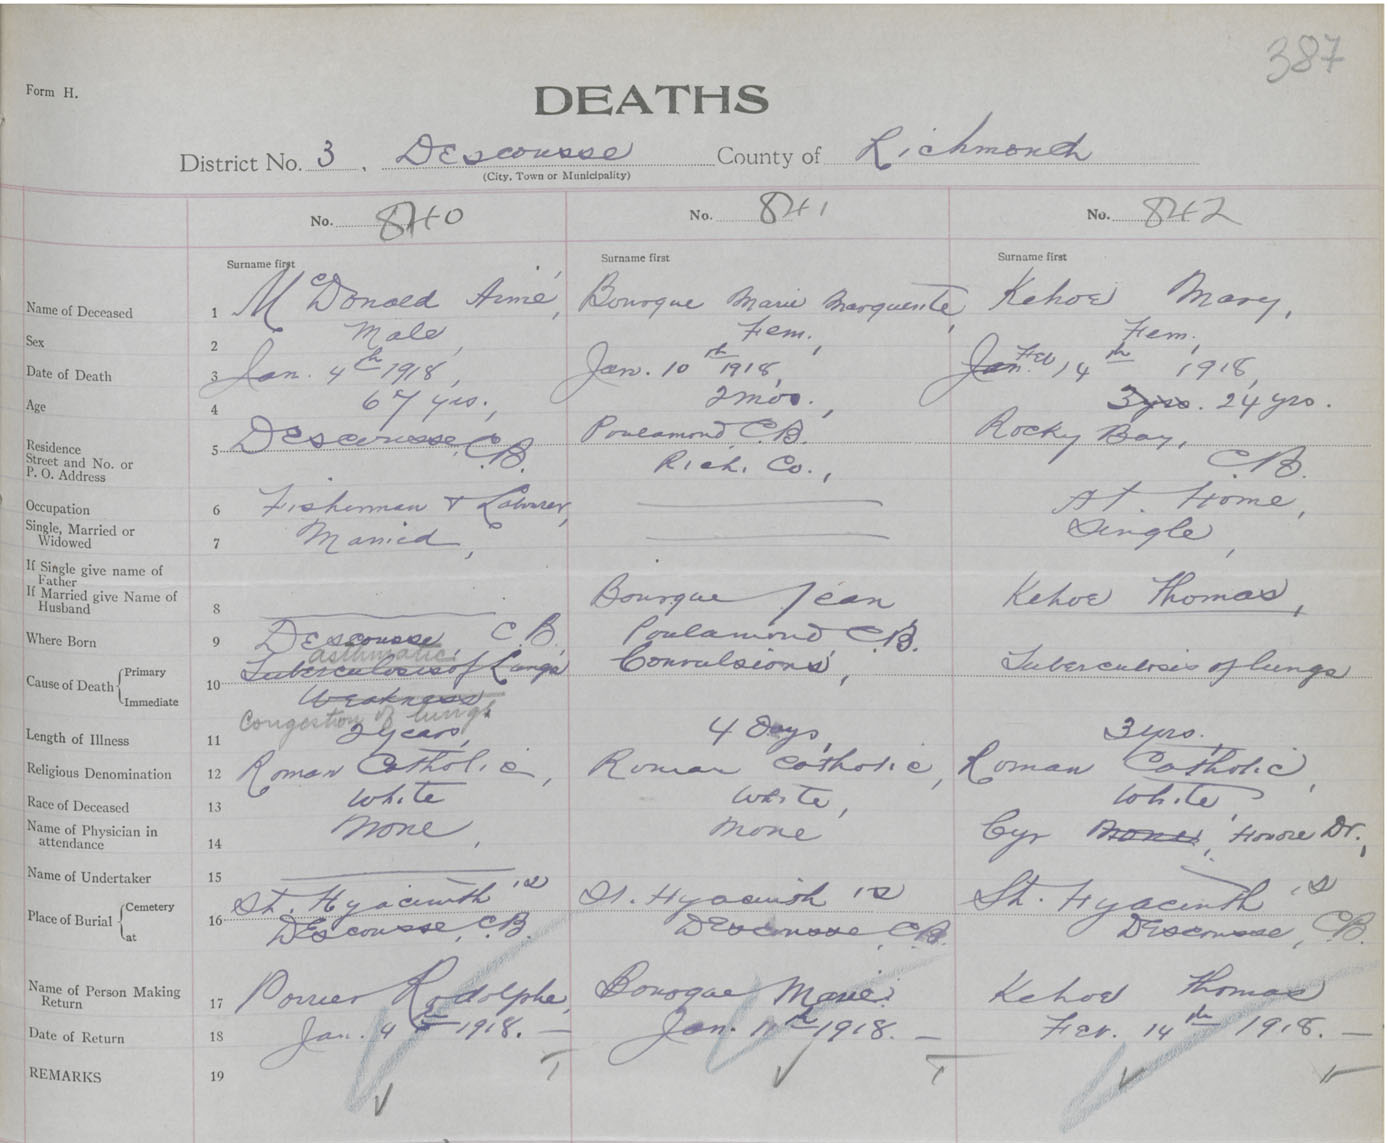 387
Form H.
DEATHS
District No. 3, Descousse County of Richmond
(City, Town or Municipality)
No. 840 No. 841 No. 842
Surname first Surname first Surname first
Name of Deceased 1 McDonald Aimé, Bourque Marie Marguerite, Kehoe Mary,
Sex 2 Male, Fem., Fem,
Date of Death 3 Jan. 4th 1918, Jan. 10th 1918, Jan. Feb 14th 1918,
Age 4 67 yrs., 2 mos., 3 yrs. 24 yrs.
Residence
Street and No. or
P. O. Address 5 Descousse, C.B. Poulamond, C.B. Rich. Co., Rocky Bay, C.B.
Occupation 6 Fisherman & Labourer, At Home,
Single, Married or
Widowed 7 Married, Single,
If Single give name of
Father
If Married give Name of
Husband 8 Bourque Jean Kehoe Thomas,
Where Born 9 Descousse C.B. Poulamond C.B.
Cause of Death Primary Immediate 10 asthmatic Tuberculosis of Lungs Weakness Congestion of lungs Convulsions, Tuberculosis of lungs
Length of Illness 11 2 years, 4 Days, 3 yrs.
Religious Denomination 12 Roman Catholic, Roman Catholic, Roman Catholic,
Race of Deceased 13 White White, White,
Name of Physician in
attendance 14 None, None Cyr None, Honore Dr.,
Name of Undertaker 15
Place of Burial Cemetery at 16 St. Hyacinth's Descousse, C.B. St. Hyacinth's Descousse, C.B. St. Hyacinth's Descousse, C.B.
Name of Person Making
Return 17 Poirier Rodolphe, Bourque Marie. Kehoe Thomas
Date of Return 18 Jan. 4th 1918. — Jan. 11th 1918. — Feb. 14th 1918. —
REMARKS 19